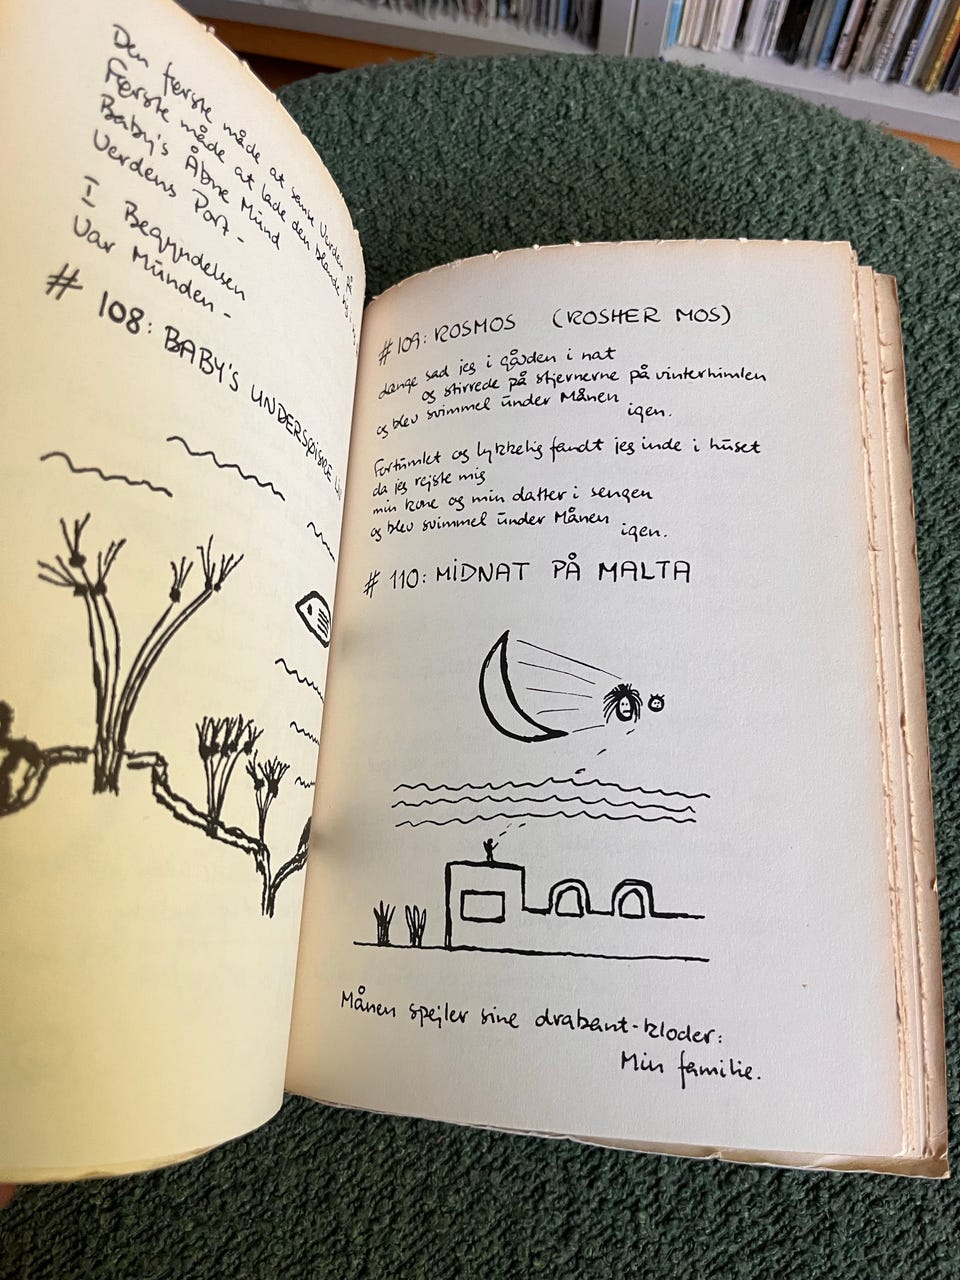 Den første måde at sanse Verden på
Første måde at lade den blande sig i
Baby's Åbne Mund
Verdens Port -
I Begyndelsen
Var Munden -
# 108: BABY'S UNDERSØISKE LIV
# 109: KOSMOS (KOSHER MOS)
Længe sad jeg i gården i nat
og stirrede på stjernerne på vinterhimlen
og blev svimmel under Månen
igen.
Fortumlet og lykkelig fandt jeg inde i huset
da jeg rejste mig
min kone og min datter i sengen
og blev svimmel under Månen
igen.
# 110: MIDNAT PÅ MALTA
Månen spejler sine drabant-kloder:
Min familie.